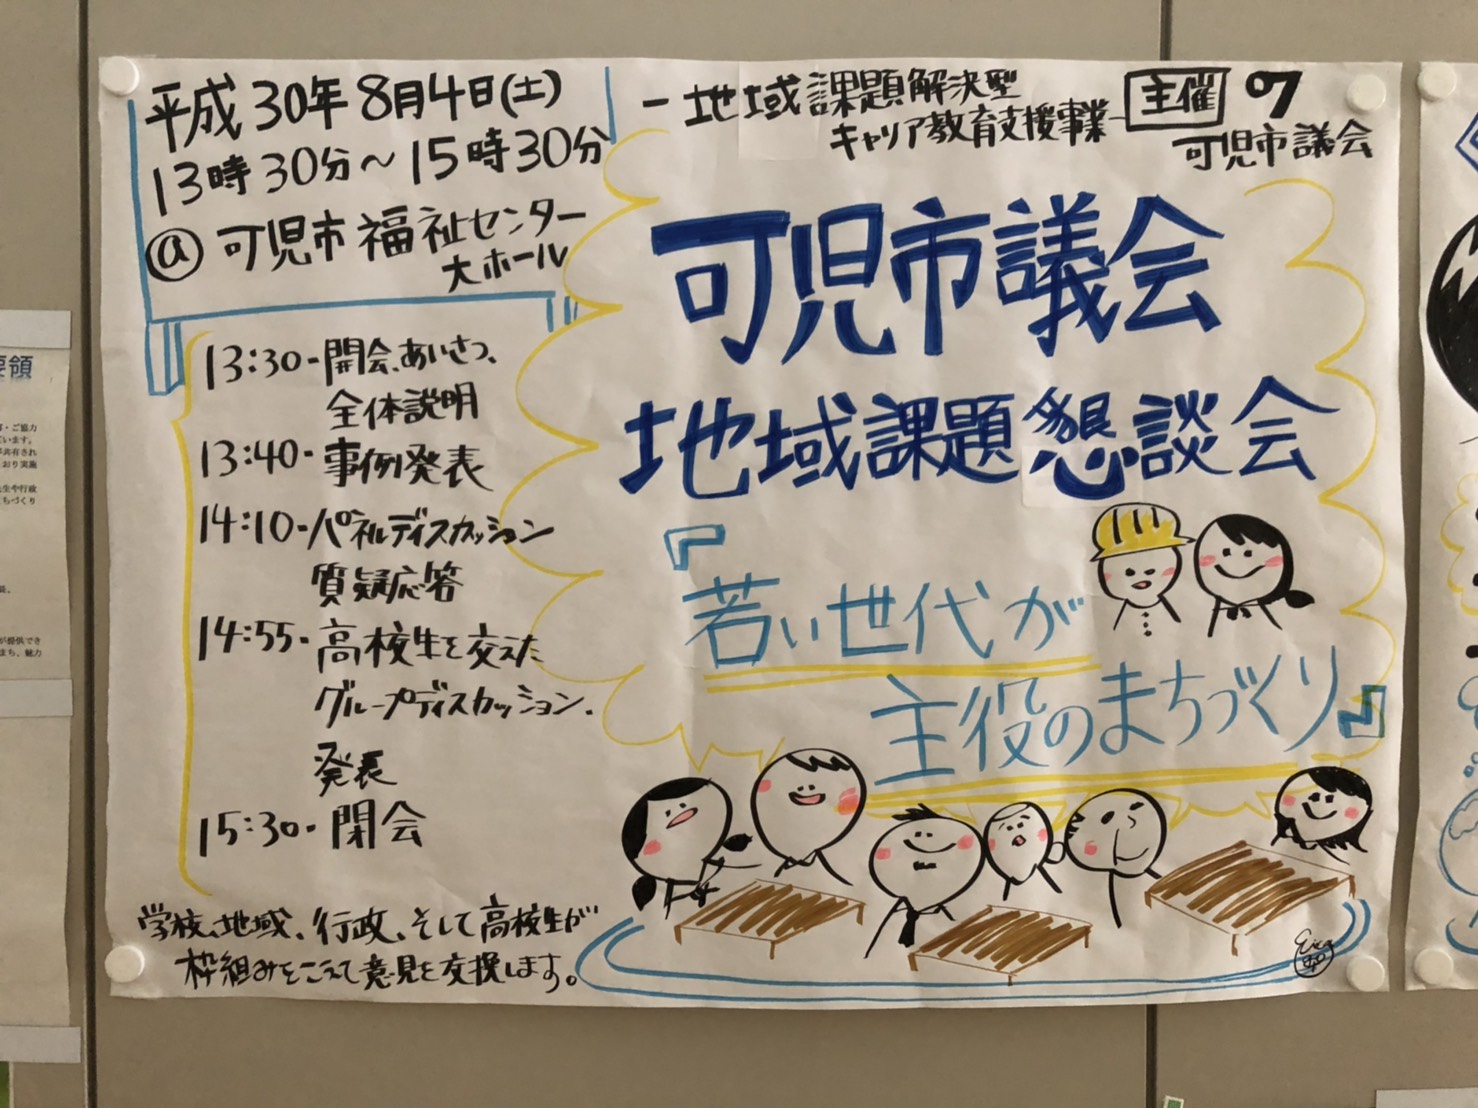 平成30年8月4日(土)
13時30分〜15時30分
@可児市福祉センター
大ホール
13:30-開会、あいさつ、
全体説明
13:40-事例発表
14:10-パネルディスカッション
質疑応答
14:55-高校生を交えた
グループディスカッション、
発表
15:30-閉会
学校、地域、行政、そして高校生が
枠組みをこえて意見を交換します。
-地域課題解決型
キャリア教育支援事業-
主催
可児市議会
可児市議会
地域課題懇談会
『若い世代が
主役のまちづくり』
要領